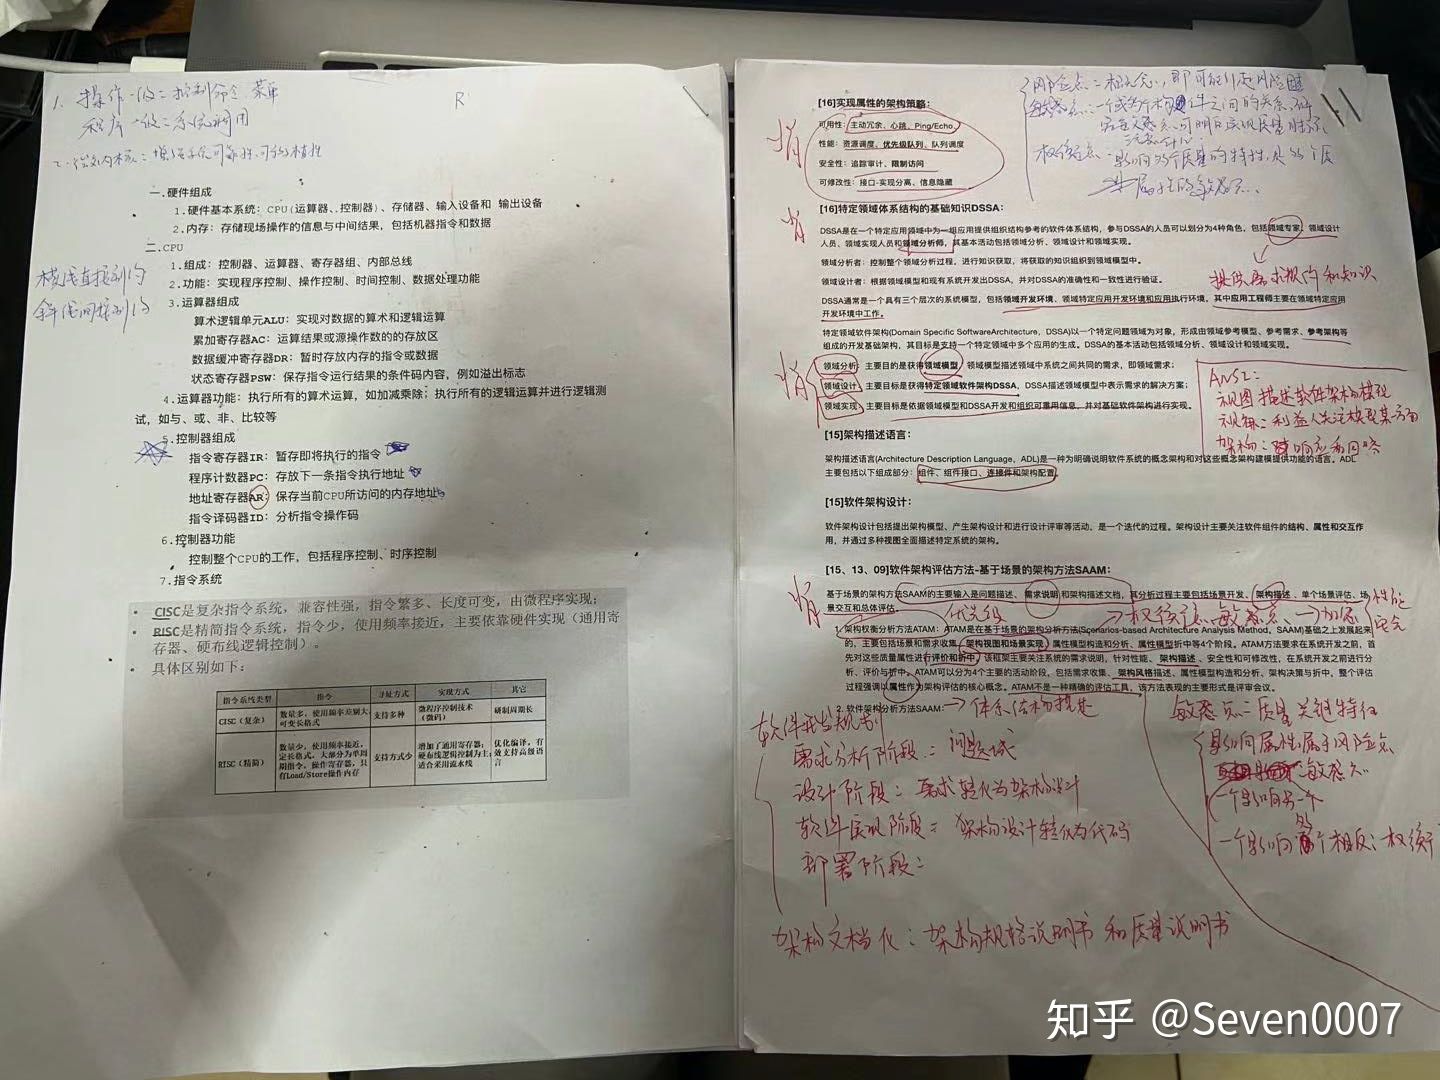 1. 操作一级：控制命令 菜单
程序一级：系统调用
R
一.硬件组成
1.硬件基本系统：CPU(运算器、控制器)、存储器、输入设备和 输出设备
2.内存：存储现场操作的信息与中间结果，包括机器指令和数据
二.CPU
1.组成：控制器、运算器、寄存器组、内部总线
2.功能：实现程序控制、操作控制、时间控制、数据处理功能
3.运算器组成
算术逻辑单元ALU：实现对数据的算术和逻辑运算
累加寄存器AC：运算结果或源操作数的的存放区
数据缓冲寄存器DR：暂时存放内存的指令或数据
状态寄存器PSW：保存指令运行结果的条件码内容，例如溢出标志
4.运算器功能：执行所有的算术运算，如加减乘除；执行所有的逻辑运算并进行逻辑测
试，如与、或、非、比较等
5.控制器组成
指令寄存器IR：暂存即将执行的指令
程序计数器PC：存放下一条指令执行地址
地址寄存器AR：保存当前CPU所访问的内存地址
指令译码器ID：分析指令操作码
6.控制器功能
控制整个CPU的工作，包括程序控制、时序控制
7.指令系统
• CISC是复杂指令系统，兼容性强，指令繁多、长度可变，由微程序实现；
• RISC是精简指令系统，指令少，使用频率接近，主要依靠硬件实现（通用寄
存器、硬布线逻辑控制）。
• 具体区别如下：
指令系统类型 指令 寻址方式 实现方式 其它
CISC（复杂） 数量多，使用频率差别大，可变长格式 支持多种 微程序控制技术（微码） 研制周期长
RISC（精简） 数量少，使用频率接近，定长格式，大部分为单周期指令，操作寄存器，只有Load/Store操作内存 支持方式少 增加了通用寄存器；硬布线逻辑控制为主；适合采用流水线 优化编译，有效支持高级语言
[16]实现属性的架构策略：
可用性：主动冗余、心跳、Ping/Echo
性能：资源调度、优先级队列、队列调度
安全性：追踪审计、限制访问
可修改性：接口-实现分离、信息隐藏
[16]特定领域体系结构的基础知识DSSA：
DSSA是在一个特定应用领域中为一组应用提供组织结构参考的软件体系结构，参与DSSA的人员可以划分为4种角色，包括领域专家、领域设计
人员、领域实现人员和领域分析师，其基本活动包括领域分析、领域设计和领域实现。
领域分析者：控制整个领域分析过程，进行知识获取，将获取的知识组织到领域模型中。
领域设计者：根据领域模型和现有系统开发出DSSA，并对DSSA的准确性和一致性进行验证。
提供需求规约和知识
DSSA通常是一个具有三个层次的系统模型，包括领域开发环境、领域特定应用开发环境和应用执行环境，其中应用工程师主要在领域特定应用
开发环境中工作。
特定领域软件架构(Domain Specific SoftwareArchitecture，DSSA)以一个特定问题领域为对象，形成由领域参考模型、参考需求、参考架构等
组成的开发基础架构，其目标是支持一个特定领域中多个应用的生成。DSSA的基本活动包括领域分析、领域设计和领域实现。
领域分析：主要目的是获得领域模型，领域模型描述领域中系统之间共同的需求，即领域需求；
领域设计：主要目标是获得特定领域软件架构DSSA，DSSA描述领域模型中表示需求的解决方案；
领域实现：主要目标是依据领域模型和DSSA开发和组织可重用信息，并对基础软件架构进行实现。
[15]架构描述语言：
架构描述语言(Architecture Description Language，ADL)是一种为明确说明软件系统的概念架构和对这些概念架构建模提供功能的语言。ADL
主要包括以下组成部分：组件、组件接口、连接件和架构配置。
[15]软件架构设计：
软件架构设计包括提出架构模型、产生架构设计和进行设计评审等活动，是一个迭代的过程。架构设计主要关注软件组件的结构、属性和交互作
用，并通过多种视图全面描述特定系统的架构。
[15、13、09]软件架构评估方法-基于场景的架构方法SAAM：
基于场景的架构方法SAAM的主要输入是问题描述、需求说明和架构描述文档，其分析过程主要包括场景开发、架构描述、单个场景评估、场
景交互和总体评估。
优先级
架构权衡分析方法ATAM：ATAM是在基于场景的架构分析方法(Scenarios-based Architecture Analysis Method，SAAM)基础之上发展起来
的，主要包括场景和需求收集、架构视图和场景实现、属性模型构造和分析、属性模型折中等4个阶段。ATAM方法要求在系统开发之前，首
先对这些质量属性进行评价和折中。该框架主要关注系统的需求说明，针对性能、架构描述、安全性和可修改性，在系统开发之前进行分
析、评价与折中。ATAM可以分为4个主要的活动阶段，包括需求收集、架构风格描述、属性模型构造和分析、架构决策与折中，整个评估
过程强调以属性作为架构评估的核心概念。ATAM不是一种精确的评估工具，该方法表现的主要形式是评审会议。
2. 软件架构分析方法SAAM：
需求分析阶段：问题域
设计阶段：需求转化为架构设计
软件实现阶段：架构设计转化为代码
部署阶段：
架构文档化：架构规格说明书 和质量说明书
知乎 @Seven0007